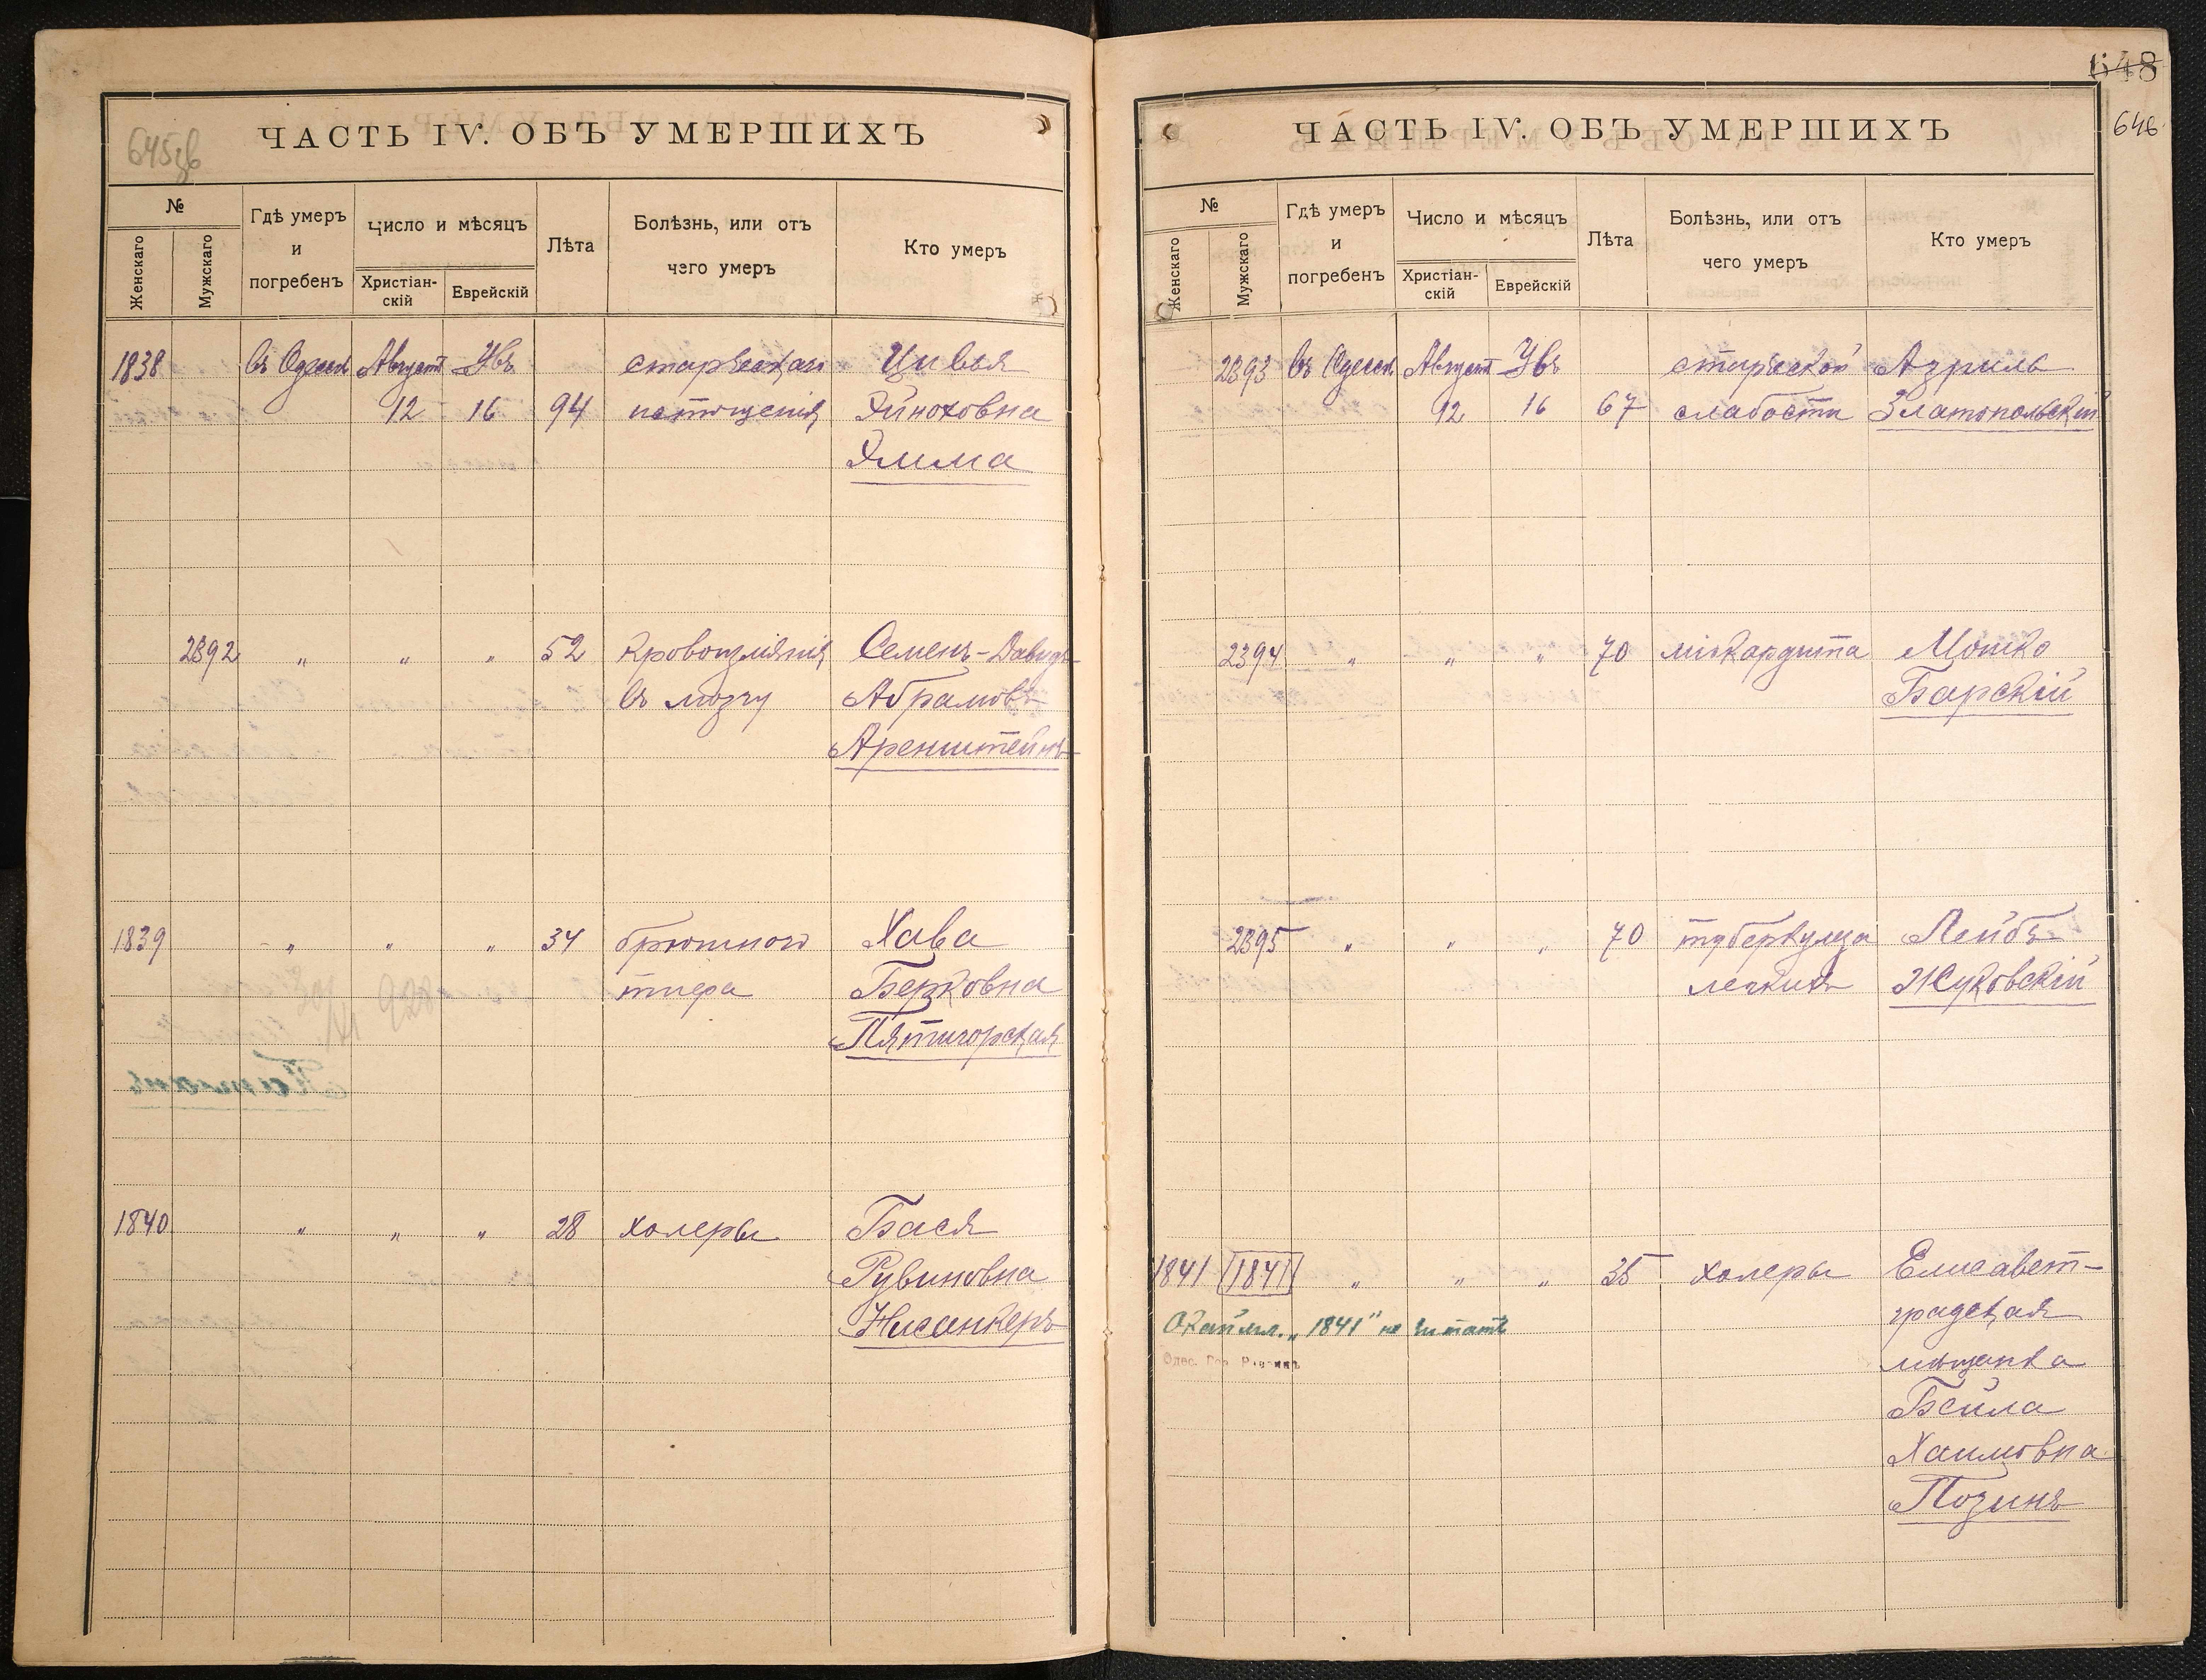 645об
ЧАСТЬ IV. ОБЪ УМЕРШИХЪ
№
Женскаго
Мужскаго
Гдѣ умеръ
и
погребенъ
Число и мѣсяцъ
Христіан-
скій
Еврейскій
Лѣта
Болѣзнь, или отъ
чего умеръ
Кто умеръ
1838 въ Одессѣ Августъ Увъ старческаго Цивья
12 16 94 истощенія Эйноховна
Элима
2392 „ „ „ 52 кровоизліянія Семенъ-Давидъ
въ мозгу Абрамовъ
Аренштейнъ
1839 „ „ „ 34 брюшного Хава
тифа Берковна
Пятигорская
1840 „ „ „ 28 холеры Бася
Рувиновна
Нисенкеръ
648
646
ЧАСТЬ IV. ОБЪ УМЕРШИХЪ
№
Женскаго
Мужскаго
Гдѣ умеръ
и
погребенъ
Число и мѣсяцъ
Христіан-
скій
Еврейскій
Лѣта
Болѣзнь, или отъ
чего умеръ
Кто умеръ
2393 въ Одессѣ Августъ Увъ старческой Азриль
12 16 67 слабости Златопольскій
2394 „ „ „ 70 міокардита Мошко
Барскій
2395 „ „ „ 70 туберкулеза Лейбъ
легкихъ Жуковскій
1841 1841 „ „ „ 35 холеры Елисавет-
градская
Окаймл. „1841" не читать
мѣщанка
Одес. Гор. Раввинъ
Бейла
Хаимовна
Позинъ